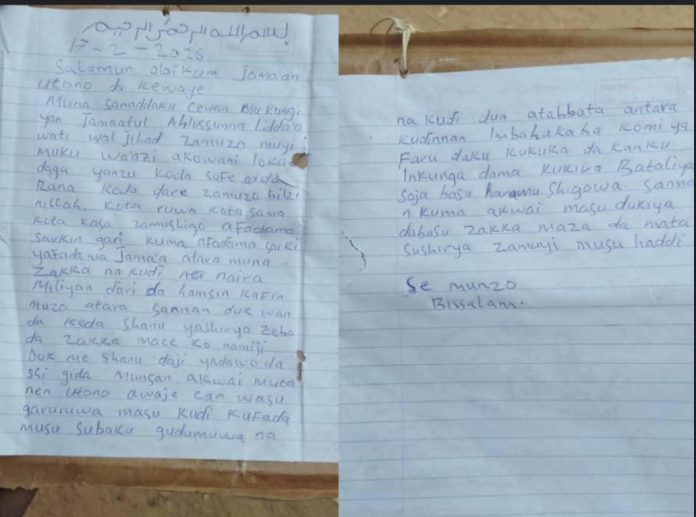 بسم الله الرحمن الرحيم
17-2-2026
Salamun alaikum Jama'an
Utono da kewaye
Muna Sanaddaku Cewan Mukungi
yan Jamaatul Ahlussunna Lidda'a
wati wal Jihad zamuzo muyi
muku wa'azi akowani loka
daga yanzu koda Safe koda
Rana koda dare zamuzo bilzi
nillah. Kota ruwa Kota Sama
Kota Kasa zamushigo afadama
Sarkin gari, Kuma afadama Sarki
yafadama Jama'a atara muna
Zakka na kudi naira
Miliyan dari da hamsin kafin
muzo atara Sannan duk wan
da keda Shanu yashirya zeba
da Zakka mace ko namiji
Duk me Shanu daji yadawo da
Shi gida Munsan akwai muta
nen Utono awaje can wasu
garuruwa masu kudi kufada
musu Subaku gudumuwa na
na kudi dun atabbata antara
kudinnan Inbahakaba komi ya
Faru daku kukuka da kanku
Inkunga dama kukira Bataliya
Soja basu hanamu Shigowa. Sanna
n kuma akwai masu dukiya
dabasu zakka maza da mata
Sushirya zamuyi musu haddi
Se munzo
Bissalam.